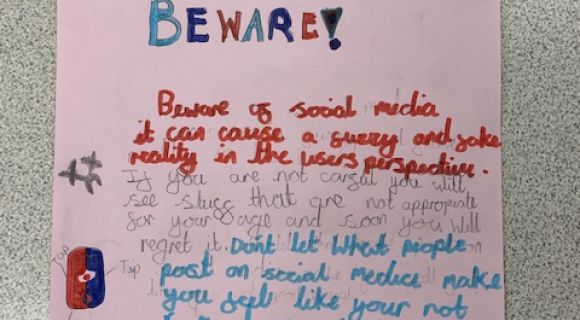 BEWARE!
Beware of social media
it can cause a fuzzy and fake
reality in the users perspective.
If you are not careful you will
see stuff that are not appropriate
for your age and soon you will
regret it. Don't let what people
Tap
Tip
post on social media make
you feel like your not